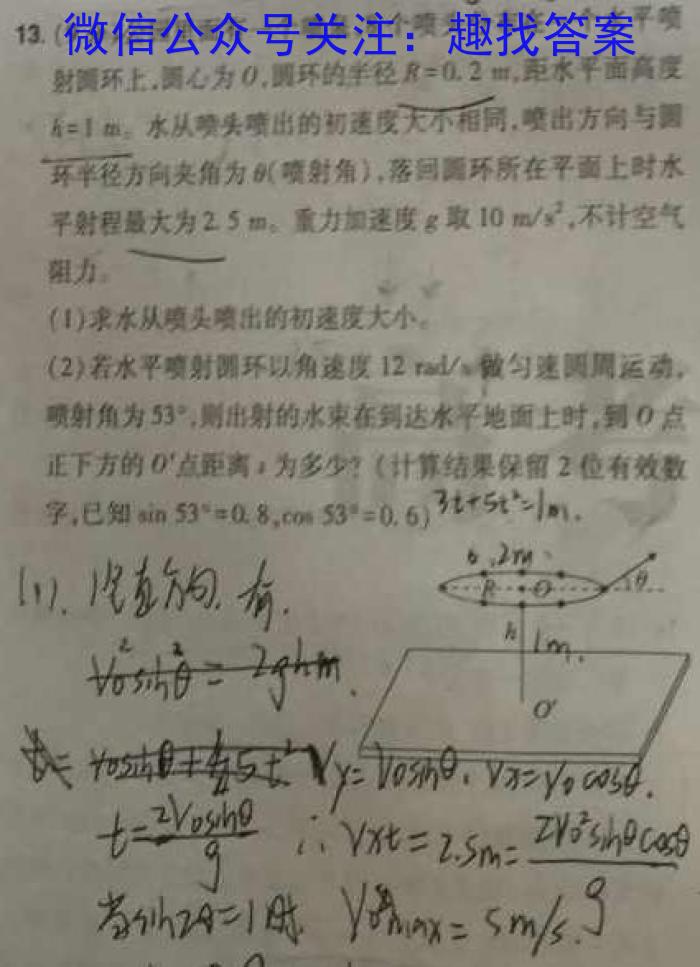 微信公众号关注：趣找答案
13.
个喷
水平喷
射圆环上,圆心为O,圆环的半径R=0.2 m,距水平面高度
h=1 m。水从喷头喷出的初速度大小相同,喷出方向与圆
环半径方向夹角为θ(喷射角),落回圆环所在平面上时水
平射程最大为2.5 m。重力加速度g取10 m/s²,不计空气
阻力。
(1)求水从喷头喷出的初速度大小。
(2)若水平喷射圆环以角速度12 rad/s做匀速圆周运动,
喷射角为53°,则出射的水束在到达水平地面上时,到O点
正下方的O'点距离s为多少?(计算结果保留2位有效数
字,已知sin 53°=0.8,cos 53°=0.6)
3t+5t²=1m.
0.2m
R O θ
h 1m.
O'
(1). 竖直方向, 有.
V₀²sin²θ = 2gh
Vy=V₀sinθ. Vx=V₀cosθ.
t=2V₀sinθ/g ∴ Vxt=2.5m=2V₀²sinθcosθ/g
当sin2θ=1时. V₀max=5m/s.